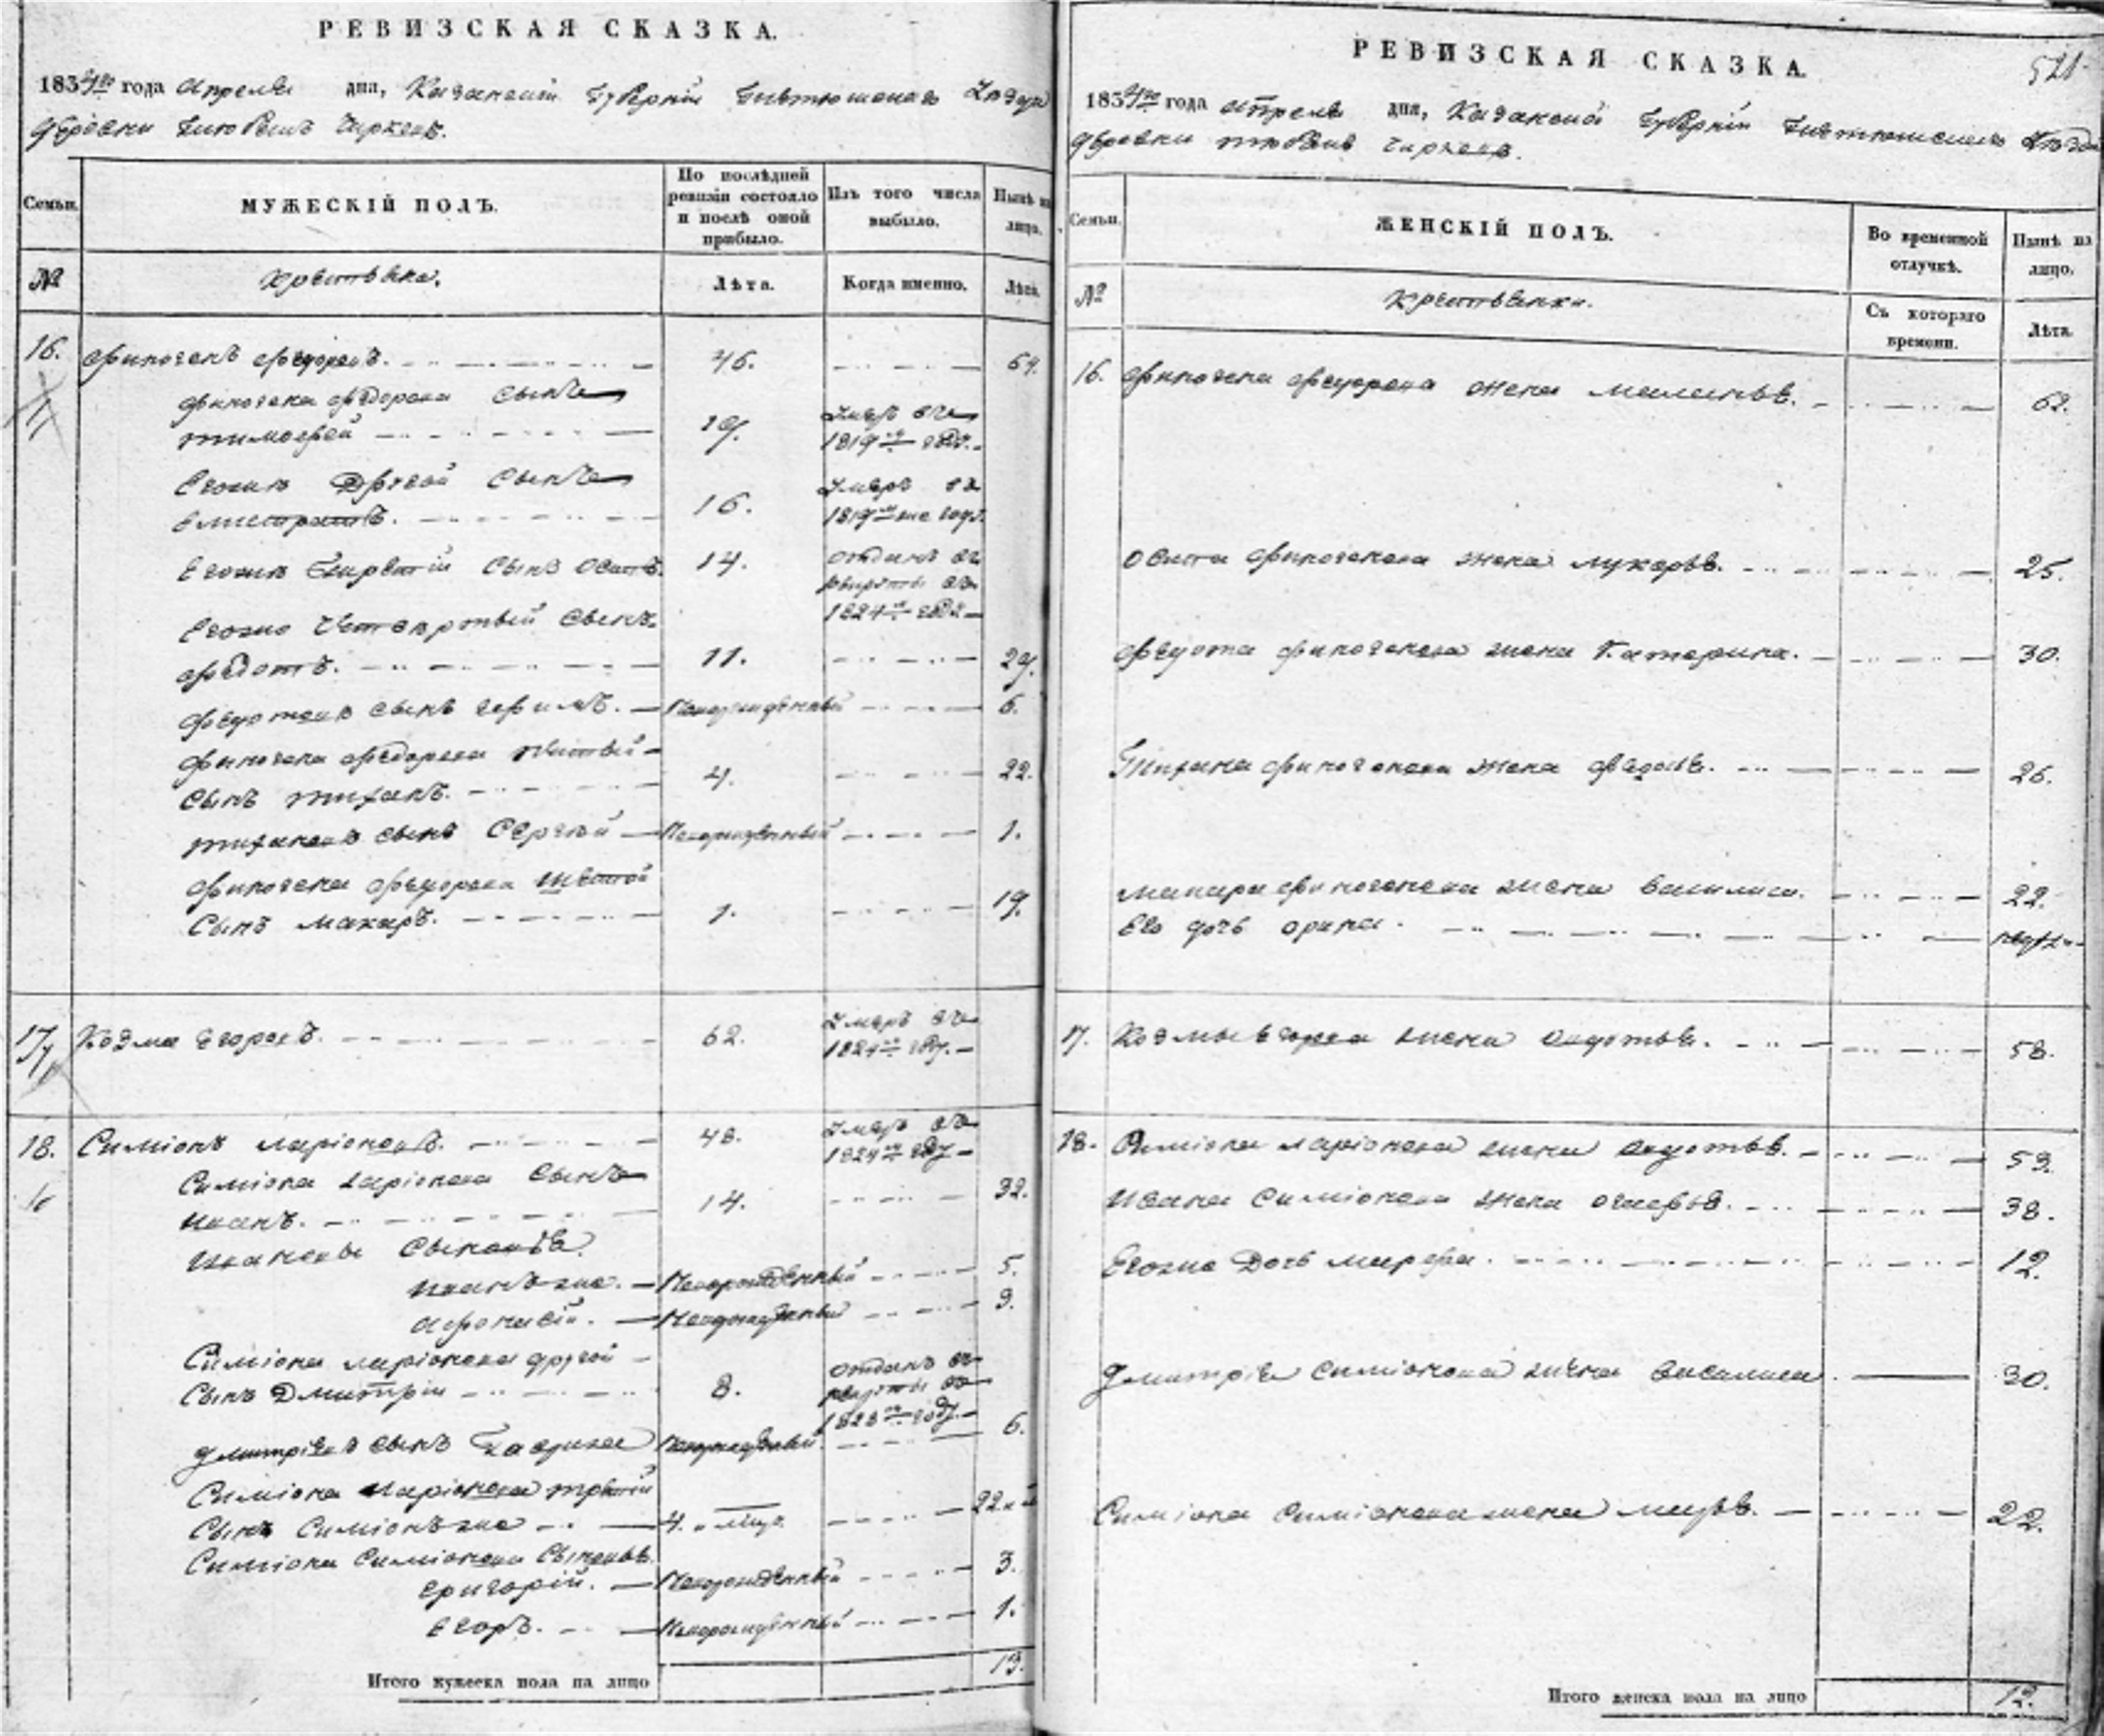 РЕВИЗСКАЯ СКАЗКА.
1834го года Апреля дня, Казанской Губернии Уезда
деревни
Семьи. МУЖЕСКІЙ ПОЛЪ. По послѣдней ревизіи состояло и послѣ оной прибыло. Изъ того числа выбыло. Нынѣ на лицо.
№ Крестьяне. Лѣта. Когда именно. Лѣта.
16. Финогенъ Федоровъ. 46. 64.
Финогена Федорова сынъ
Тимофей 19. умеръ въ 1819м году.
Егожъ другой сынъ
16. умеръ въ 1819м году
Егожъ третій сынъ Осипъ. 14. отданъ въ рекруты въ 1824м году
Егоже четвертый сынъ
Федотъ. 11. 29.
Федотовъ сынъ Ефимъ. Новорожденный 6.
Финогена Федорова пятый
сынъ Тиханъ. 4. 22.
Тихановъ сынъ Сергей Новорожденный 1.
Финогена Федорова шестой
сынъ Макаръ. 1. 19.
17 Козма Егоровъ. 62. умеръ въ 1824м году.
18. Симионъ Ларіоновъ. 48. умеръ въ 1824м году
Симіона Ларіонова сынъ
Иванъ. 14. 32.
Ивановы сыновья
Иванъ же. Новорожденный 5.
Афонасій. Новорожденный 3.
Симіона Ларіонова другой
сынъ Дмитрій 8. отданъ въ рекруты въ 1828м году
Дмитріевъ сынъ Гаврила Новорожденный 6.
Симіона Ларіонова третій
сынъ Симіонъ же 4. 22
Симіона Симіонова сыновья
Григорій. Новорожденный 3.
Егоръ. Новорожденный 1.
Итого мужеска пола на лицо 13.
РЕВИЗСКАЯ СКАЗКА. 521
1834го года Апреля дня, Казанской Губернии Уезда
деревни
Семьи. ЖЕНСКІЙ ПОЛЪ. Во временной отлучкѣ. Нынѣ на лицо.
№ Крестьянки. Съ котораго времени. Лѣта.
16. Финогена Федорова жена Меланья. 62.
Осипа Финогенова жена Лукерья. 25.
Федота Финогенова жена Катерина. 30.
Тихана Финогенова жена Федосья. 26.
Макара Финогенова жена Василиса. 22.
Его дочь Орина.
17. Козмы Егорова жена Авдотья. 58.
18. Симіона Ларіонова жена Авдотья. 53.
Ивана Симіонова жена 38.
Егоже дочь Марфа. 12.
Дмитрія Симіонова жена Василиса. 30.
Симіона Симіонова жена 22.
Итого женска пола на лицо 12.